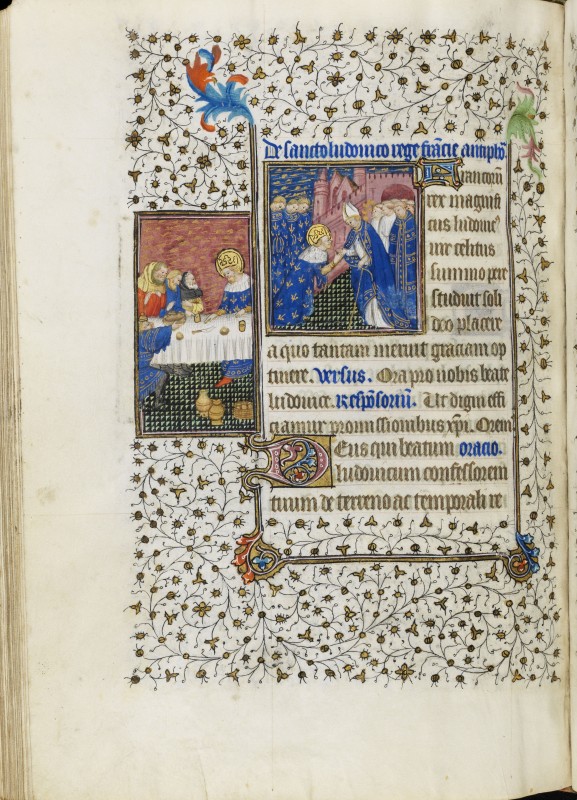 De sancto ludovico rege francie antipho
Francorum
rex magnifi
cus ludovic
ure celitus
summo pere
studuit soli
deo placere
a quo tantam meruit graciam op
tinere. Versus. Ora pro nobis beate
ludovice. Responsorium. Ut digni effi
ciamur promissionibus xpi. Orem
Deus qui beatum oracio.
ludovicum confessorem
tuum de terreno ac temporali re